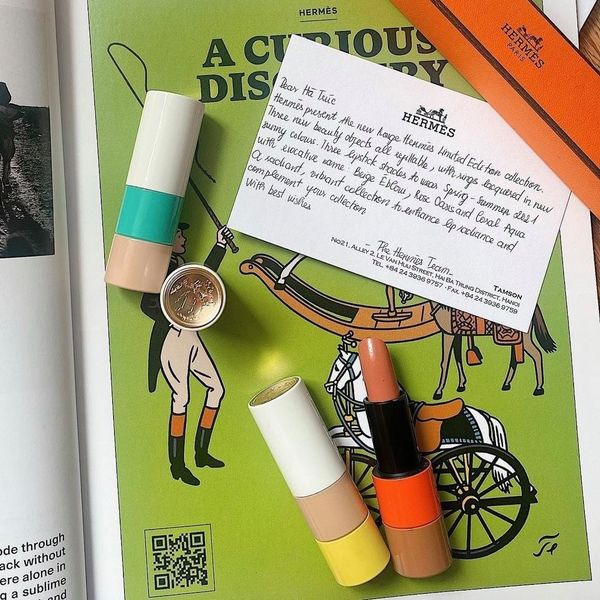 HERMÈS
A CURIOUS
DISC
HERMÈS
PARIS
HERMÈS
Dear Hà Trúc
Hermès present the new Rouge Hermès Limited Edition collection.
Three new beauty objects all refillable, with rings lacquered in new
sunny colours. Three lipstick shades to wear Spring - Summer 2021
with evocative name: Beige Ebloui, Rose Oasis and Coral Aqua
A radiant, vibrant collection to enhance lip radiance and
complement your collection
With best wishes
_ The Hermès Team_
TAMSON
NO21, ALLEY 2, LE VAN HUU STREET, HAI BA TRUNG DISTRICT, HANOI
TEL. +84 24 3936 9757 - FAX. +84 24 3936 9759
ode through
ack without
ere alone in
g a sublime
and